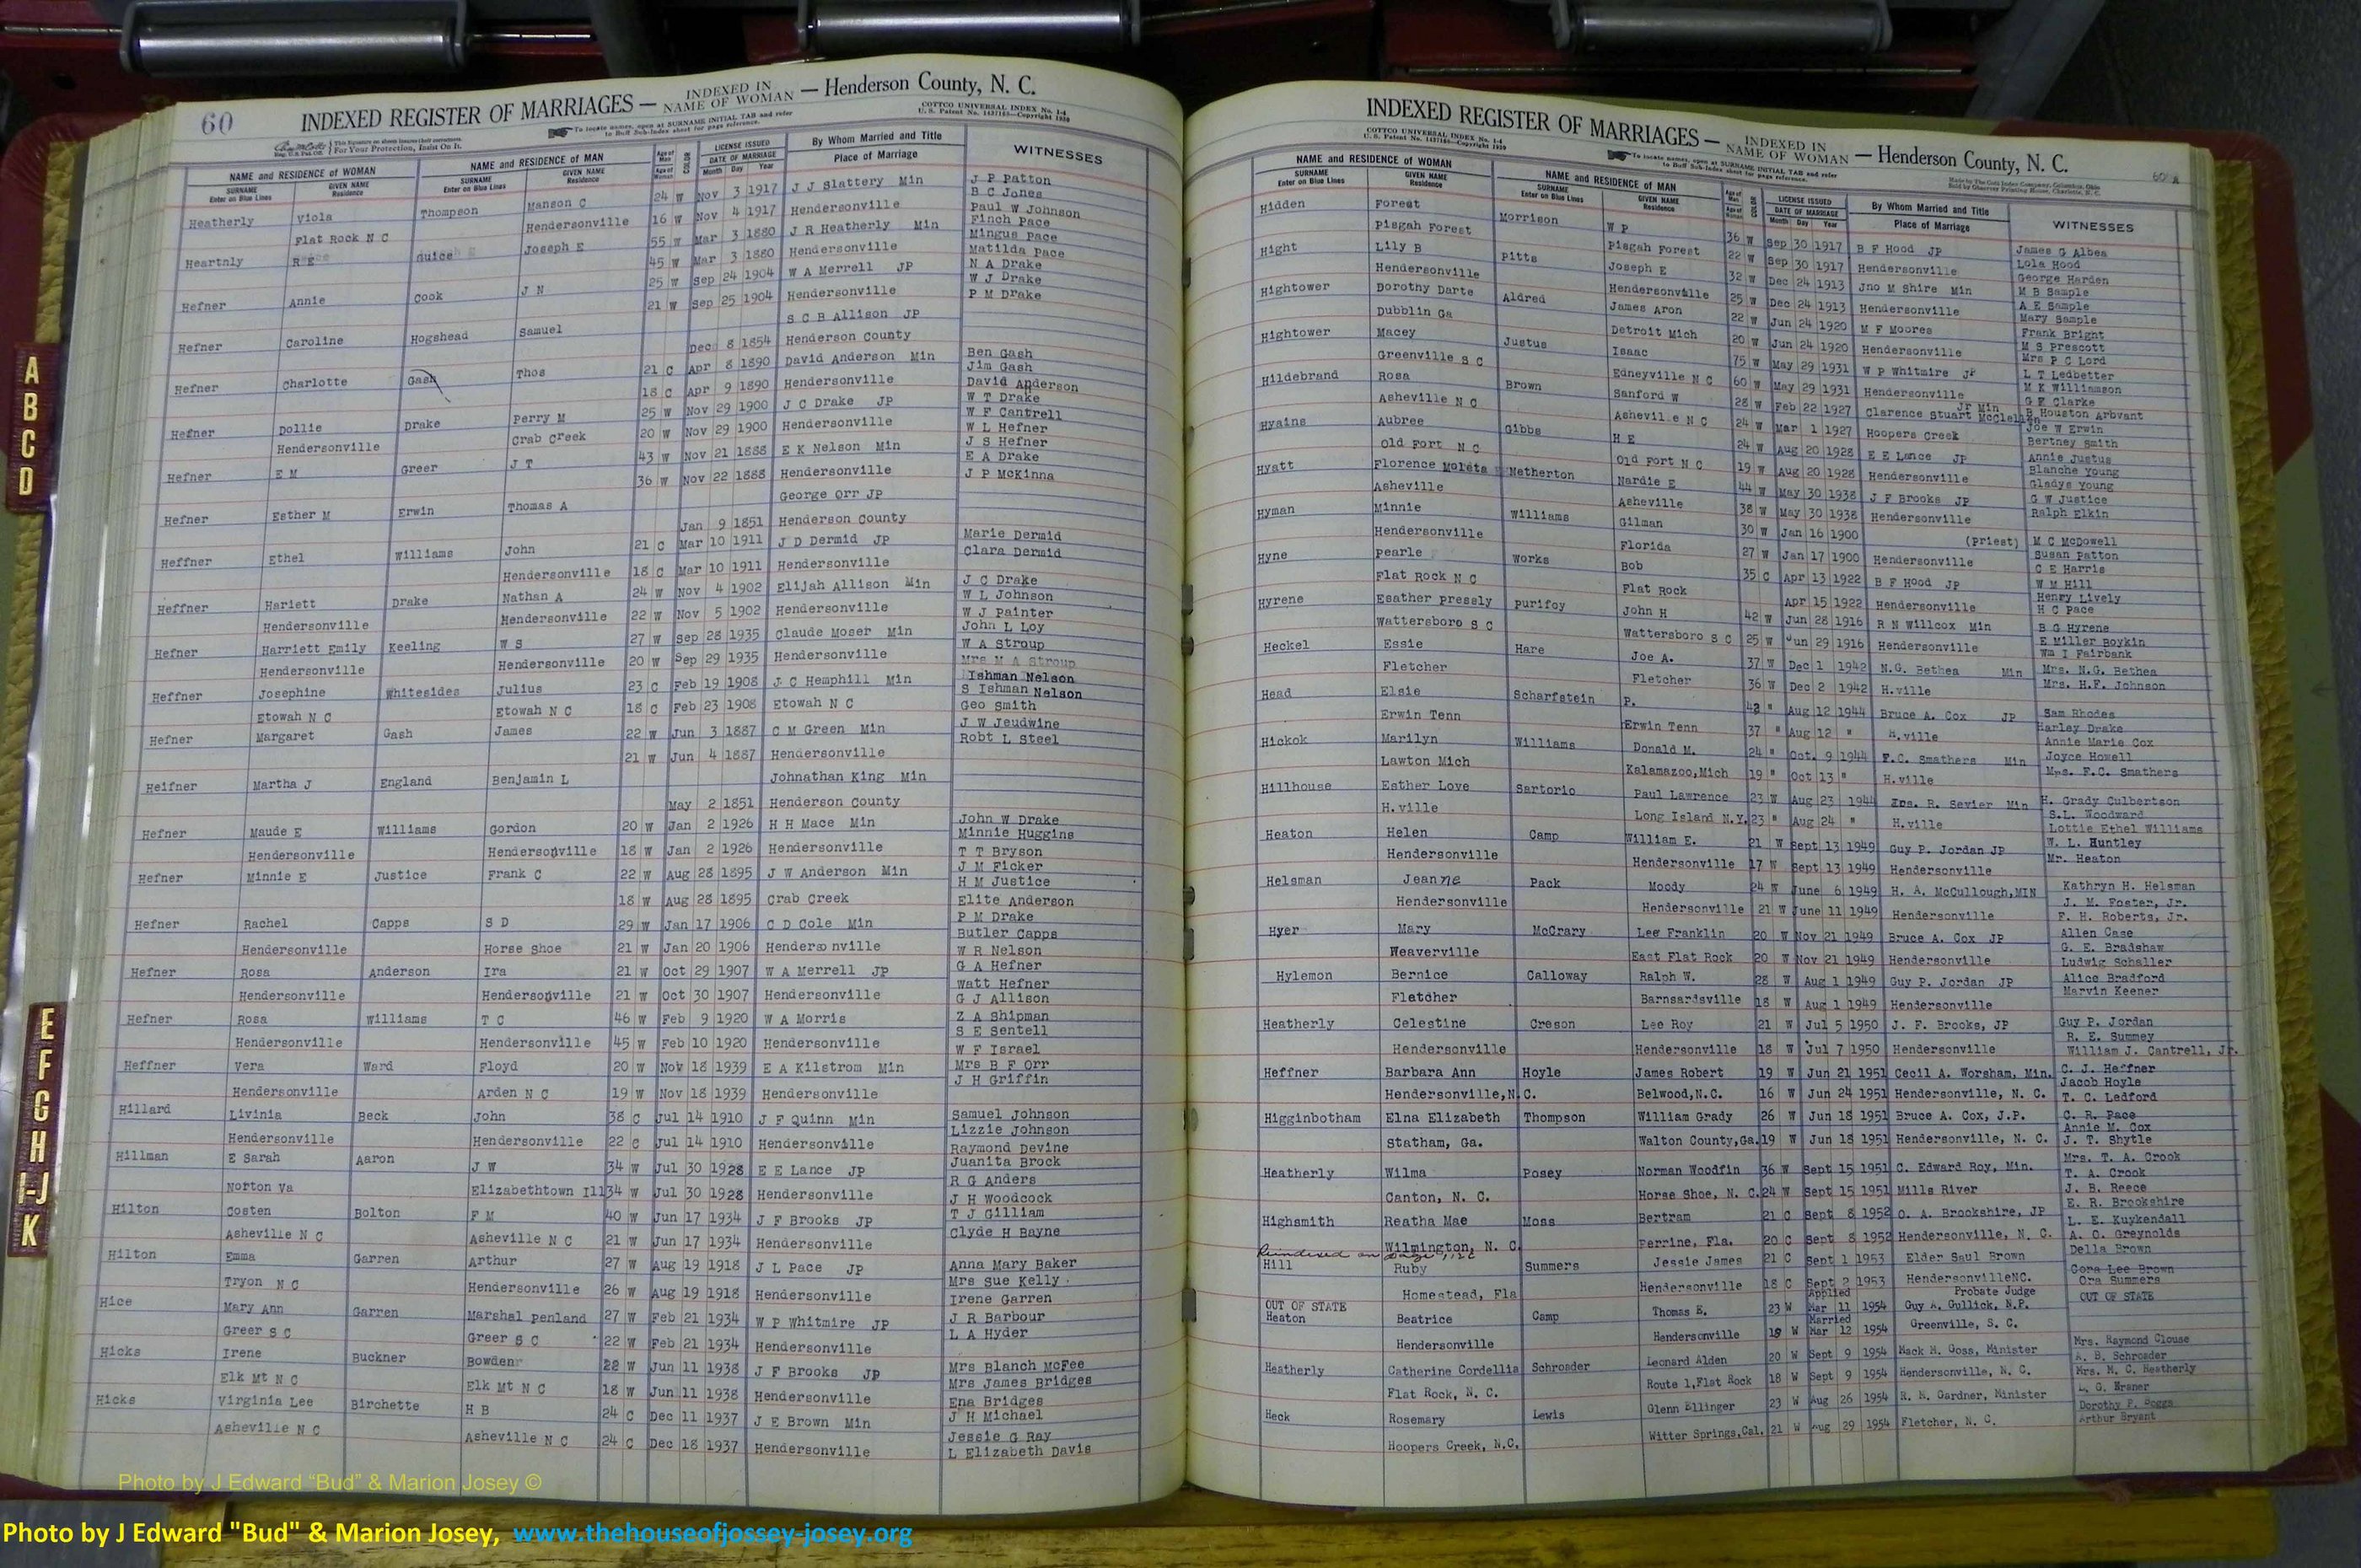 60
INDEXED REGISTER OF MARRIAGES — INDEXED IN NAME OF WOMAN — Henderson County, N. C.
To locate names, open at SURNAME INITIAL TAB and refer to Buff Sub-Index sheet for page reference.
COTTCO UNIVERSAL INDEX No. 1-4
For Your Protection, Insist On It.
NAME and RESIDENCE OF WOMAN NAME and RESIDENCE OF MAN LICENSE ISSUED By Whom Married and Title WITNESSES
SURNAME Enter on Blue Lines GIVEN NAME Residence SURNAME Enter on Blue Lines GIVEN NAME Residence Age of Man Age of Woman COLOR DATE OF MARRIAGE Month Day Year Place of Marriage
Heatherly Viola Thompson Manson C 24 W Nov 3 1917 J J Slattery Min J P Patton B C Jones
Flat Rock N C Hendersonville 16 W Nov 4 1917 Hendersonville Paul W Johnson
Heartnly R E Guice Joseph E 55 W Mar 3 1880 J R Heatherly Min Finch Pace Mingus Pace
45 W Mar 3 1880 Hendersonville Matilda Pace
Hefner Annie Cook J N 25 W Sep 24 1904 W A Merrell JP N A Drake W J Drake
21 W Sep 25 1904 Hendersonville P M Drake
Hefner Caroline Hogshead Samuel S C B Allison JP
Dec 8 1854 Henderson County
Hefner Charlotte Gash Thos 21 C Apr 8 1890 David Anderson Min Ben Gash Jim Gash
18 C Apr 9 1890 Hendersonville David Anderson
Hefner Dollie Drake Perry M 25 W Nov 29 1900 J C Drake JP W T Drake W F Cantrell
Hendersonville Crab Creek 20 W Nov 29 1900 Hendersonville W L Hefner
Hefner E M Greer J T 43 W Nov 21 1888 E K Nelson Min J S Hefner E A Drake
36 W Nov 22 1888 Hendersonville J P McKinna
Hefner Esther M Erwin Thomas A George Orr JP
Jan 9 1851 Henderson County
Heffner Ethel Williams John 21 C Mar 10 1911 J D Dermid JP Marie Dermid Clara Dermid
Hendersonville 18 C Mar 10 1911 Hendersonville
Heffner Hariett Drake Nathan A 24 W Nov 4 1902 Elijah Allison Min J C Drake W L Johnson
Hendersonville Hendersonville 22 W Nov 5 1902 Hendersonville W J Painter
Hefner Harriett Emily Keeling W S 27 W Sep 28 1935 Claude Moser Min John L Loy W A Stroup
Hendersonville Hendersonville 20 W Sep 29 1935 Hendersonville Mrs M A Stroup
Heffner Josephine Whitesides Julius 23 C Feb 19 1908 J C Hemphill Min Ishman Nelson S Ishman Nelson
Etowah N C Etowah N C 18 C Feb 23 1908 Etowah N C Geo Smith
Hefner Margaret Gash James 22 W Jun 3 1887 C M Green Min J W Jeudwine Robt L Steel
21 W Jun 4 1887 Hendersonville
Heifner Martha J England Benjamin L Johnathan King Min
May 2 1851 Henderson County
Hefner Maude E Williams Gordon 20 W Jan 2 1926 H H Mace Min John W Drake Minnie Huggins
Hendersonville Hendersonville 18 W Jan 2 1926 Hendersonville T T Bryson
Hefner Minnie E Justice Frank C 22 W Aug 28 1895 J W Anderson Min J M Ficker H M Justice
18 W Aug 28 1895 Crab Creek Elite Anderson
Hefner Rachel Capps S D 29 W Jan 17 1906 C D Cole Min P M Drake Butler Capps
Hendersonville Horse Shoe 21 W Jan 20 1906 Hendersonville W R Nelson
Hefner Rosa Anderson Ira 21 W Oct 29 1907 W A Merrell JP G A Hefner Watt Hefner
Hendersonville Hendersonville 21 W Oct 30 1907 Hendersonville G J Allison
Hefner Rosa Williams T C 46 W Feb 9 1920 W A Morris Z A Shipman S E Sentell
Hendersonville Hendersonville 45 W Feb 10 1920 Hendersonville W F Israel
Heffner Vera Ward Floyd 20 W Nov 18 1939 E A Kilstrom Min Mrs B F Orr J H Griffin
Hendersonville Arden N C 19 W Nov 18 1939 Hendersonville
Hillard Livinia Beck John 38 C Jul 14 1910 J F Quinn Min Samuel Johnson Lizzie Johnson
Hendersonville Hendersonville 22 C Jul 14 1910 Hendersonville Raymond Devine
Hillman E Sarah Aaron J W 34 W Jul 30 1928 E E Lance JP Juanita Brock R G Anders
Norton Va Elizabethtown Ill 34 W Jul 30 1928 Hendersonville J H Woodcock
Hilton Costen Bolton F M 40 W Jun 17 1934 J F Brooks JP T J Gilliam Clyde H Bayne
Asheville N C Asheville N C 21 W Jun 17 1934 Hendersonville
Hilton Emma Garren Arthur 27 W Aug 19 1918 J L Pace JP Anna Mary Baker Mrs Sue Kelly
Tryon N C Hendersonville 26 W Aug 19 1918 Hendersonville Irene Garren
Hice Mary Ann Garren Marshal Penland 27 W Feb 21 1934 W P Whitmire JP J R Barbour L A Hyder
Greer S C Greer S C 22 W Feb 21 1934 Hendersonville
Hicks Irene Buckner Bowden 22 W Jun 11 1938 J F Brooks JP Mrs Blanch McFee Mrs James Bridges
Elk Mt N C Elk Mt N C 18 W Jun 11 1938 Hendersonville Ena Bridges
Hicks Virginia Lee Birchette H B 24 C Dec 11 1937 J E Brown Min J H Michael Jessie G Ray
Asheville N C Asheville N C 24 C Dec 18 1937 Hendersonville L Elizabeth Davis
INDEXED REGISTER OF MARRIAGES — INDEXED IN NAME OF WOMAN — Henderson County, N. C.
COTTCO UNIVERSAL INDEX No. 1-4
To locate names, open at SURNAME INITIAL TAB and refer to Buff Sub-Index sheet for page reference.
60 A
NAME and RESIDENCE OF WOMAN NAME and RESIDENCE OF MAN LICENSE ISSUED By Whom Married and Title WITNESSES
SURNAME Enter on Blue Lines GIVEN NAME Residence SURNAME Enter on Blue Lines GIVEN NAME Residence Age of Man Age of Woman COLOR DATE OF MARRIAGE Month Day Year Place of Marriage
Hidden Forest Morrison W P 36 W Sep 30 1917 B F Hood JP James G Albea Lola Hood
Pisgah Forest Pisgah Forest 22 W Sep 30 1917 Hendersonville George Harden
Hight Lily B Pitts Joseph E 32 W Dec 24 1913 Jno M Shire Min M B Sample A E Sample
Hendersonville Hendersonville 25 W Dec 24 1913 Hendersonville Mary Sample
Hightower Dorothy Darte Aldred James Aron 22 W Jun 24 1920 M F Moores Frank Bright M S Prescott
Dubblin Ga Detroit Mich 20 W Jun 24 1920 Hendersonville Mrs P C Lord
Hightower Macey Justus Isaac 75 W May 29 1931 W P Whitmire JP L T Ledbetter M K Williamson
Greenville S C Edneyville N C 60 W May 29 1931 Hendersonville G E Clarke
Hildebrand Rosa Brown Sanford W 28 W Feb 22 1927 Clarence Stuart McClellan Jr Min B Houston Arbvant Joe W Erwin
Asheville N C Asheville N C 24 W Mar 1 1927 Hoopers Creek Bertney Smith
Hyains Aubree Gibbs H E 24 W Aug 20 1928 E E Lance JP Annie Justus Blanche Young
Old Fort N C Old Fort N C 19 W Aug 20 1928 Hendersonville Gladys Young
Hyatt Florence Moreta Netherton Nardie E 44 W May 30 1938 J F Brooks JP G W Justice Ralph Elkin
Asheville Asheville 38 W May 30 1938 Hendersonville
Hyman Minnie Williams Gilman 30 W Jan 16 1900 (Priest) M C McDowell Susan Patton
Hendersonville Florida 27 W Jan 17 1900 Hendersonville C E Harris
Hyne Pearle Works Bob 35 C Apr 13 1922 B F Hood JP W M Hill Henry Lively
Flat Rock N C Flat Rock Apr 15 1922 Hendersonville H C Pace
Hyrene Esather Pressly Purifoy John H 42 W Jun 28 1916 R N Willcox Min B G Hyrene E Miller Boykin
Wattersboro S C Wattersboro S C 25 W Jun 29 1916 Hendersonville Wm I Fairbank
Heckel Essie Hare Joe A. 37 W Dec 1 1942 N.G. Bethea Min Mrs. N.G. Bethea
Fletcher Fletcher 36 W Dec 2 1942 H.ville Mrs. H.F. Johnson
Head Elsie Scharfstein P. 42 " Aug 12 1944 Bruce A. Cox JP Sam Rhodes Harley Drake
Erwin Tenn Erwin Tenn 37 " Aug 12 " H.ville Annie Marie Cox
Hickok Marilyn Williams Donald M. 24 " Oct. 9 1944 F.C. Smathers Min Joyce Howell
Lawton Mich Kalamazoo, Mich 19 " Oct 13 " H.ville Mrs. F.C. Smathers
Hillhouse Esther Love Sartorio Paul Lawrence 23 W Aug 23 1944 R. Sevier Min H. Grady Culbertson S.L. Woodward
H.ville Long Island N.Y. 23 " Aug 24 " H.ville Lottie Ethel Williams
Heaton Helen Camp William E. 21 W Sept 13 1949 Guy P. Jordan JP W. L. Huntley
Hendersonville Hendersonville 17 W Sept 13 1949 Hendersonville Mr. Heaton
Helsman Jeanne Pack Moody 24 W June 6 1949 H. A. McCullough, MIN Kathryn H. Helsman J. M. Foster, Jr.
Hendersonville Hendersonville 21 W June 11 1949 Hendersonville F. H. Roberts, Jr.
Hyer Mary McCrary Lee Franklin 20 W Nov 21 1949 Bruce A. Cox JP Allen Case G. E. Bradshaw
Weaverville East Flat Rock 20 W Nov 21 1949 Hendersonville Ludwig Schaller
Hylemon Bernice Calloway Ralph W. 28 W Aug 1 1949 Guy P. Jordan JP Alice Bradford Marvin Keener
Fletcher Barnsardsville 18 W Aug 1 1949 Hendersonville
Heatherly Celestine Creson Lee Roy 21 W Jul 5 1950 J. F. Brooks, JP Guy P. Jordan R. E. Summey
Hendersonville Hendersonville 18 W Jul 7 1950 Hendersonville William J. Cantrell, Jr.
Heffner Barbara Ann Hoyle James Robert 19 W Jun 21 1951 Cecil A. Worsham, Min. C. J. Heffner Jacob Hoyle
Hendersonville, N.C. Belwood, N.C. 16 W Jun 24 1951 Hendersonville, N. C. T. C. Ledford
Higginbotham Elna Elizabeth Thompson William Grady 26 W Jun 18 1951 Bruce A. Cox, J.P. C. R. Pace Annie M. Cox
Statham, Ga. Walton County, Ga. 19 W Jun 18 1951 Hendersonville, N. C. J. T. Shytle
Heatherly Wilma Posey Norman Woodfin 36 W Sept 15 1951 C. Edward Roy, Min. Mrs. T. A. Crook T. A. Crook
Canton, N. C. Horse Shoe, N. C. 24 W Sept 15 1951 Mills River J. B. Reece
Highsmith Reatha Mae Moss Bertram 21 C Sept 8 1952 O. A. Brookshire, JP E. R. Brookshire L. E. Kuykendall
Wilmington, N. C. Perrine, Fla. 20 C Sept 8 1952 Hendersonville, N. C. A. O. Greynolds
Reindexed on page
Hill Ruby Summers Jessie James 21 C Sept 1 1953 Elder Saul Brown Della Brown Cora Lee Brown
Homestead, Fla Hendersonville 18 C Sept 2 1953 HendersonvilleNC. Ora Summers
OUT OF STATE Applied Probate Judge OUT OF STATE
Heaton Beatrice Camp Thomas E. 23 W Mar 11 1954 Guy A. Gullick, N.P.
Hendersonville Hendersonville 19 W Married Mar 12 1954 Greenville, S. C.
Heatherly Catherine Cordellia Schroader Leonard Alden 20 W Sept 9 1954 Mack M. Goss, Minister Mrs. Raymond Clouse A. B. Schroader
Flat Rock, N. C. Route 1, Flat Rock 18 W Sept 9 1954 Hendersonville, N. C. Mrs. M. C. Heatherly
Heck Rosemary Lewis Glenn Ellinger 23 W Aug 26 1954 R. M. Gardner, Minister L. G. Dorothy P. Boggs
Hoopers Creek, N.C. Witter Springs, Cal. 21 W Aug 29 1954 Fletcher, N. C. Arthur Bryant
A
B
C
D
E
F
G
H
I-J
K
Photo by J Edward “Bud” & Marion Josey ©
Photo by J Edward "Bud" & Marion Josey, www.thehouseofjossey-josey.org